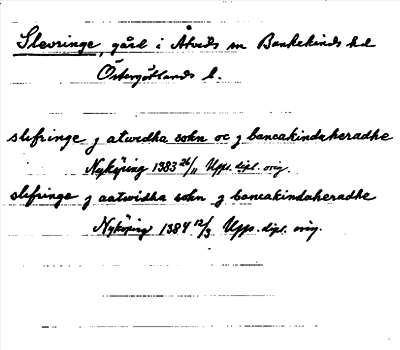 Slevringe, gård i Åtveds sn Bankekinds hd
Östergötlands l.
slefringe j atwidha sokn oc j bancakindaheradhe
Nyköping 1383 26/11 Upps. dipl. orig.
slefringe j aatwidha sokn j bancakindaheradhe
Nyköping 1384 12/3 Upps. dipl. orig.